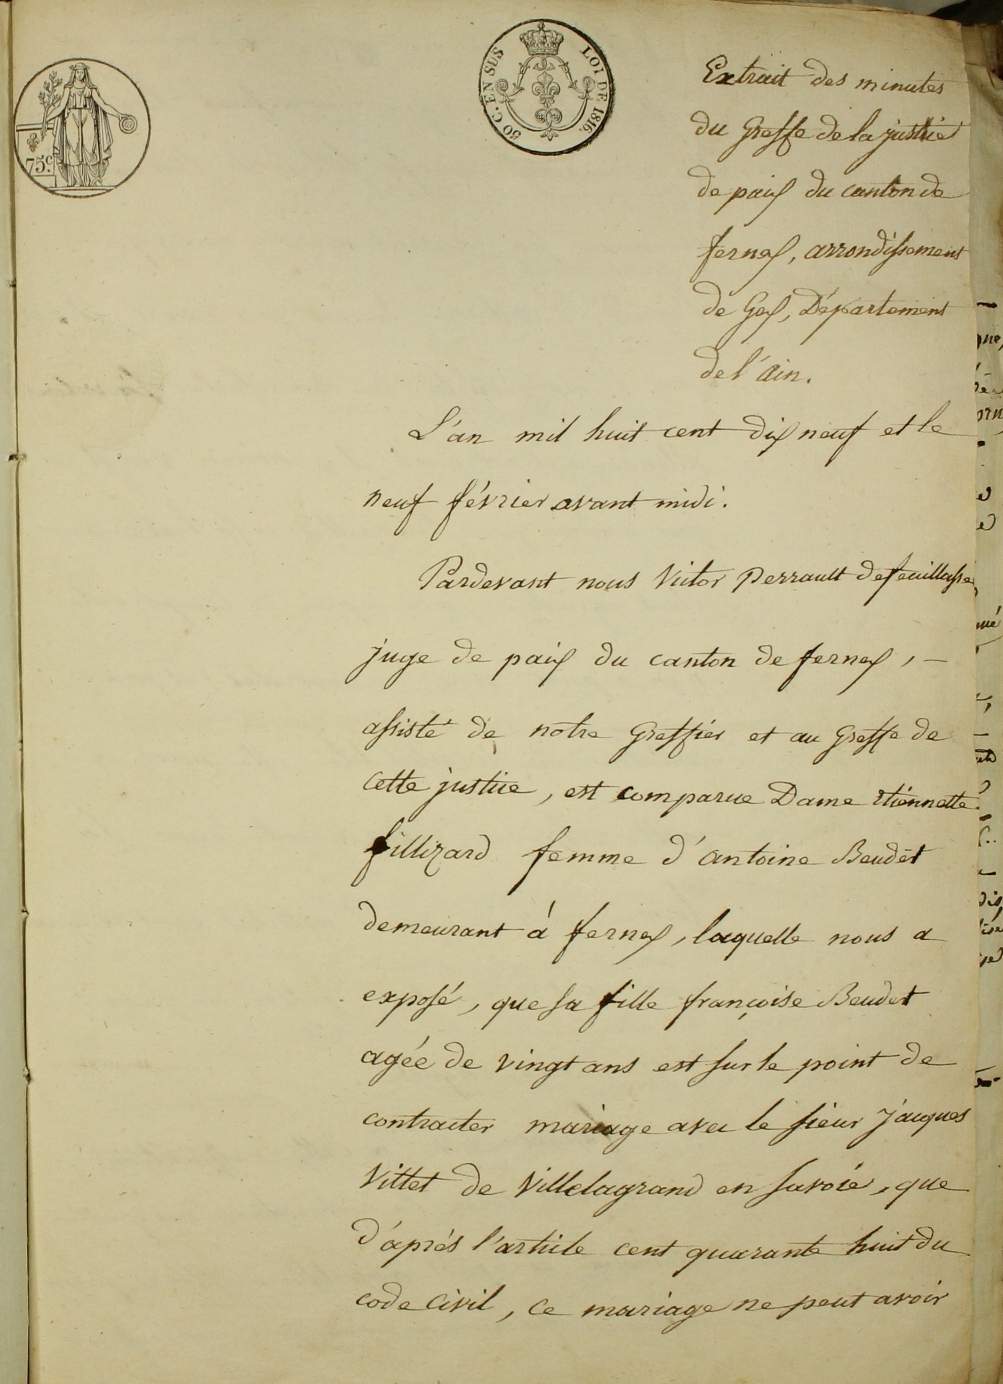 75 c.
50 C. EN SUS LOI DE 1816.
Extrait des minutes
du Greffe de la justice
de paix du canton de
fernex, arrondissement
de Gex, Département
de l'ain.
L'an mil huit cent dix neuf et le
neuf février avant midi.
Pardevant nous Victor Perrault defeuillasse
juge de paix du canton de fernex, —
assisté de notre Greffier et au Greffe de
cette justice, est comparue Dame étiennette
fillizard femme d'antoine Beudet
demeurant à fernex, laquelle nous a
exposé, que sa fille françoise Beudet
agée de vingt ans est sur le point de
contracter mariage avec le sieur jacques
Vittet de Villelagrand en savoie, que
d'après l'article cent quarante huit du
code civil, ce mariage ne peut avoir